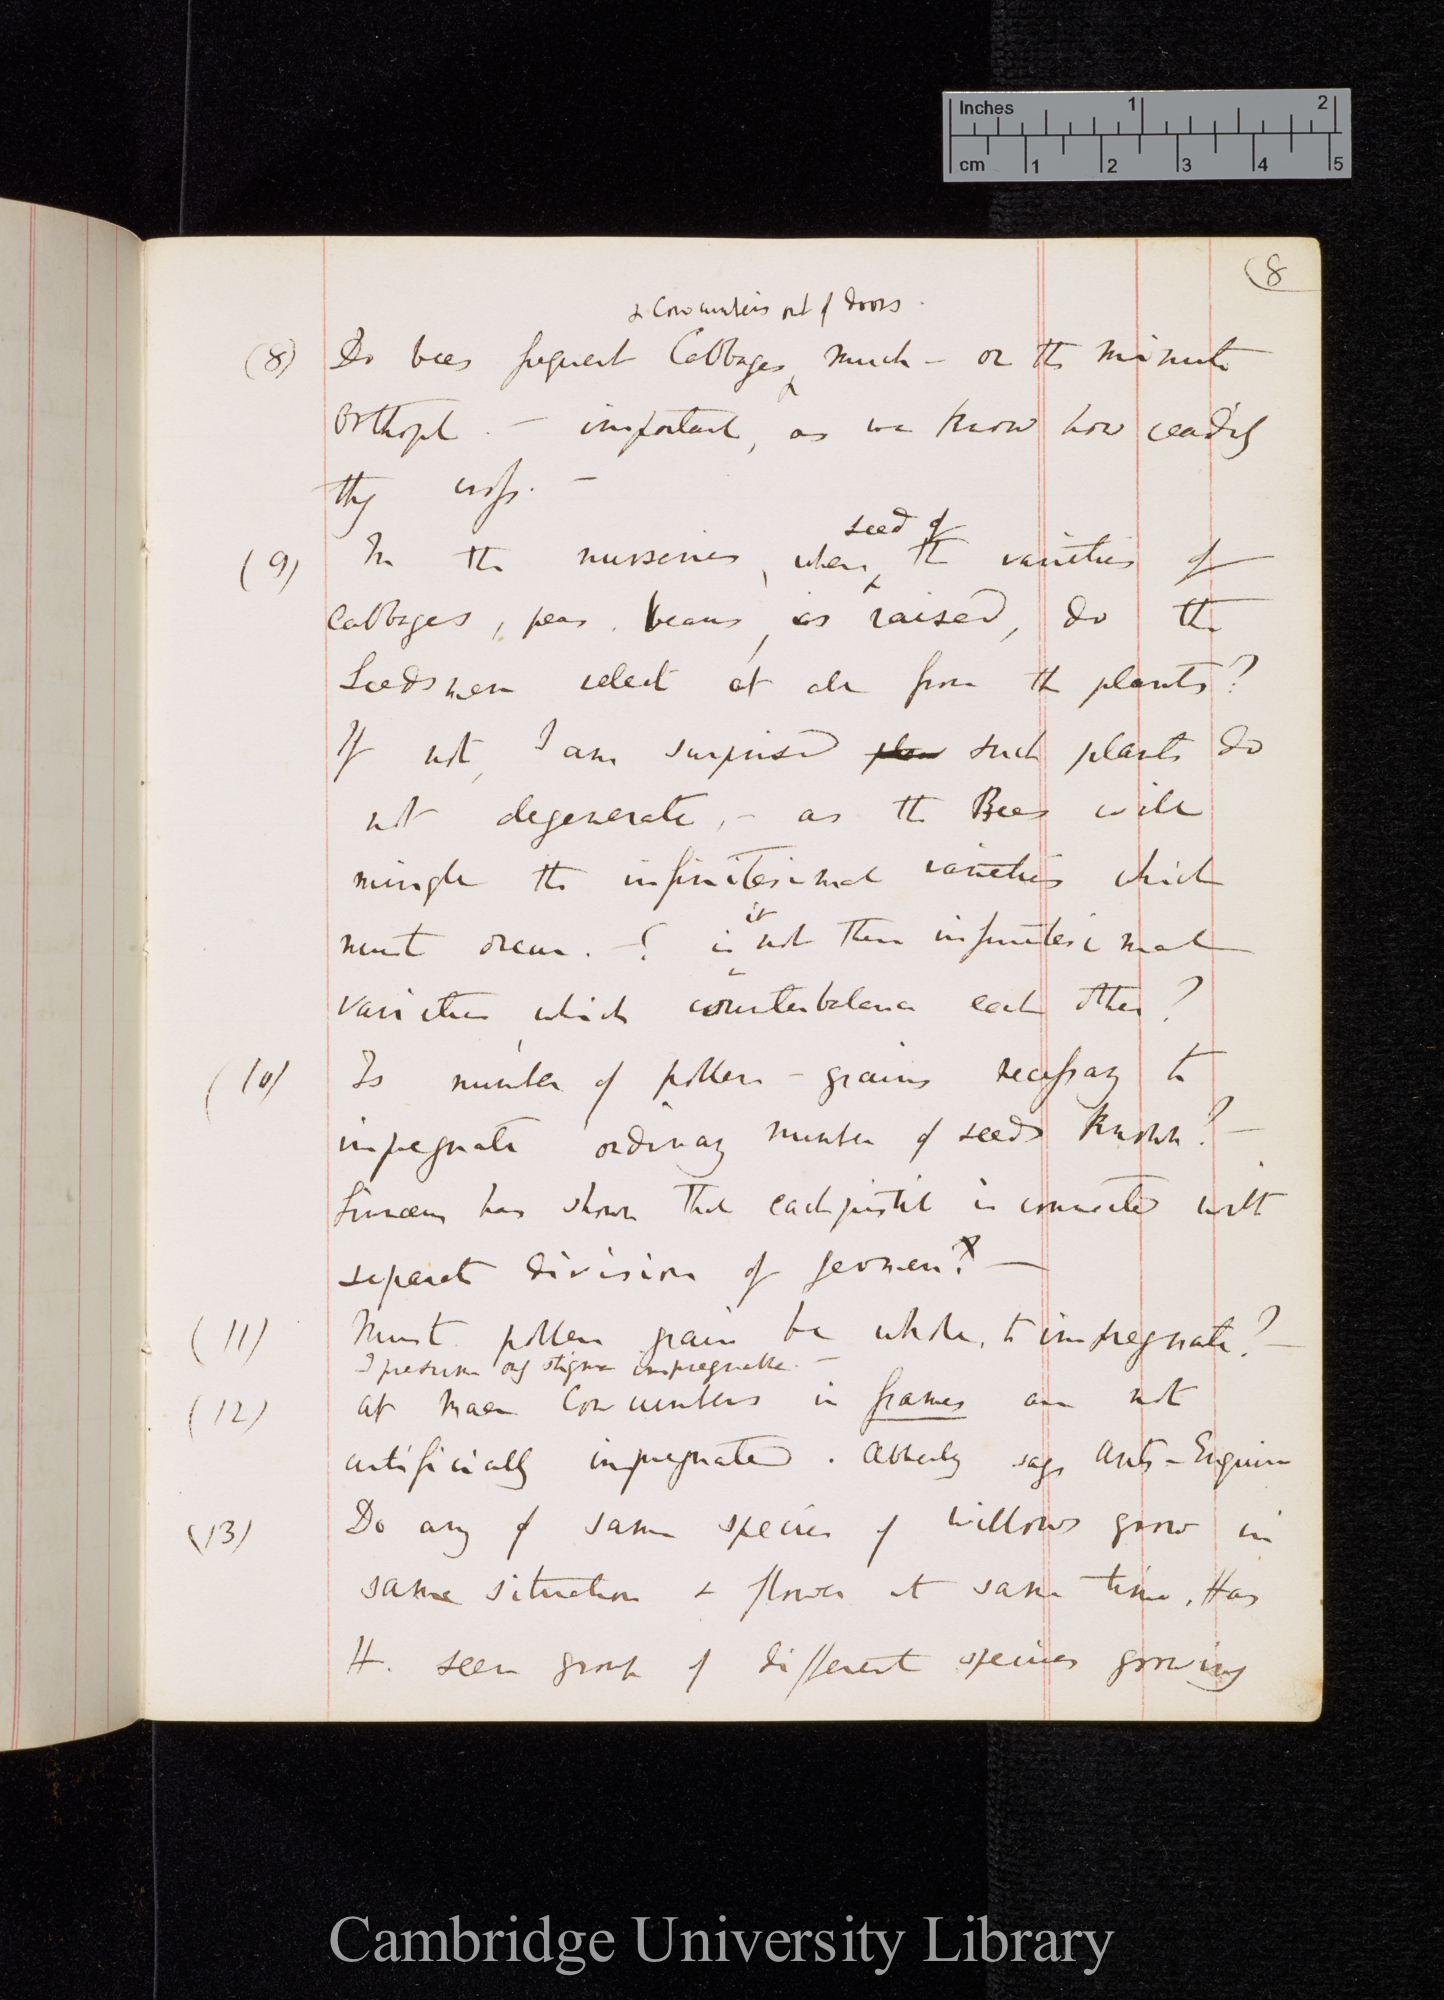 Inches 1 2
cm 1 2 3 4 5
(8
& Cowcumbers out of doors.
(8) Do bees frequent Cabbages much — or the minute
Orthopt. — important, as we know how readily
they cross. —
seed of
(9) In the nurseries, when the varieties of
cabbages, peas, beans, is raised, do the
Seedsmen select at all from the plants?
If not, I am surprised such plants do
not degenerate, — as the Bees will
mingle the infinitesimal varieties which
must occur. — ? is it not these infinitesimal
varieties, which counterbalance each other?
(10) Is number of pollen-grains necessary to
impregnate ordinary number of seeds known? —
Linnæus has shown that each pistil is connected with
separate division of germen? —
(11) Must pollen grain be whole, to impregnate? —
I presume only stigma impregnable. —
(12) At Maer Cowcumbers in frames are not
artificially impregnated. Abberley says Ants — Enquire
(13) Do any of same species of willows grow in
same situation & flower at same time. Has
H. seen group of different species growing
Cambridge University Library